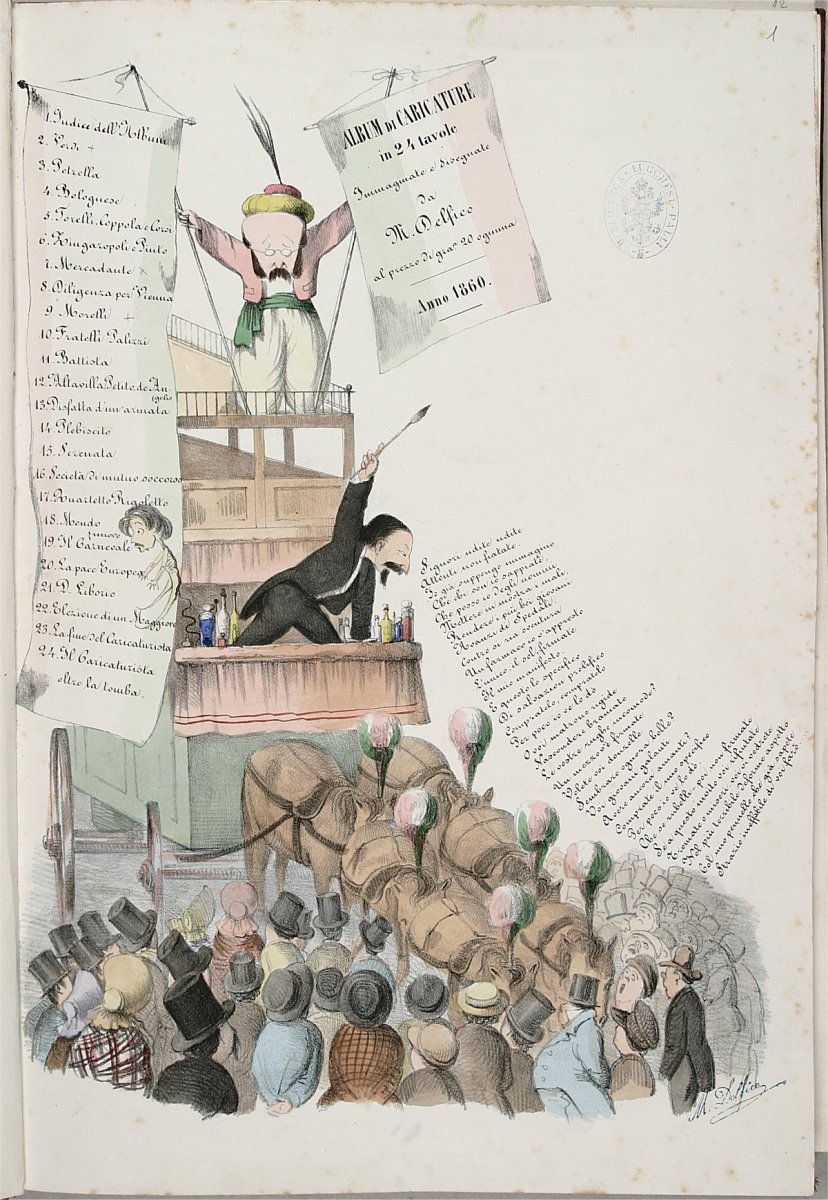 1
1. Indice dell'Album
2. Verdi +
3. Petrella
4. Bolognese
5. Torelli, Coppola e Corsi
6. Zingaropoli e Pinto
7. Mercadante ×
8. Diligenza per Vienna
9. Morelli +
10. Fratelli Palizzi
11. Battista
12. Altavilla Petito, de An-
gelis
13. Disfatta d'un'armata
14. Plebiscito
15. Serenata
16. Società di mutuo soccorso
17. Quartetto Rigoletto
18. Mondo
nuovo
19. Il Carnevale
20. La pace Europea
21. D. Liborio
22. Elezione di un Maggiore
23. La fine del Caricaturista
24. Il Caricaturista
oltre la tomba.
ALBUM DI CARICATURE
in 24 tavole
Immaginate e disegnate
da
M. Delfico
al prezzo di gra. 20 ognuna
Anno 1860.
Signori udite udite
Attenti non fiatate
Io già suppongo immagino
Che chi son io sappiate,
Che posso io degli uomini
Mettere in mostra i mali
Rendere i più bei giovani
Nojosi da Spedali.
Contro sì ria sventura
Un farmaco v'appresto
L'unico il sol: firmate
Il mio manifesto.
È questo lo specifico
Di salvazion prolifico
Compratelo, compratelo
Per poco io ve lo do
O voi matrone rigide
Nascondere bramate
Le vostre rughe incomode?
Un mezzo v'è firmate
Volete voi donzelle
Sembrare ognora belle?
Voi giovani galanti
Avere ancora amanti?
Comprate il mio specifico
Per poco io ve lo do
Che se ribelli voi non firmate
Se a questo invito voi rifiutate
Tremate o miseri voi mi vedrete
Nel più terribile deforme aspetto
Col mio pennello che già sapete
Strazio ineffabile di voi farò
M. Delfico